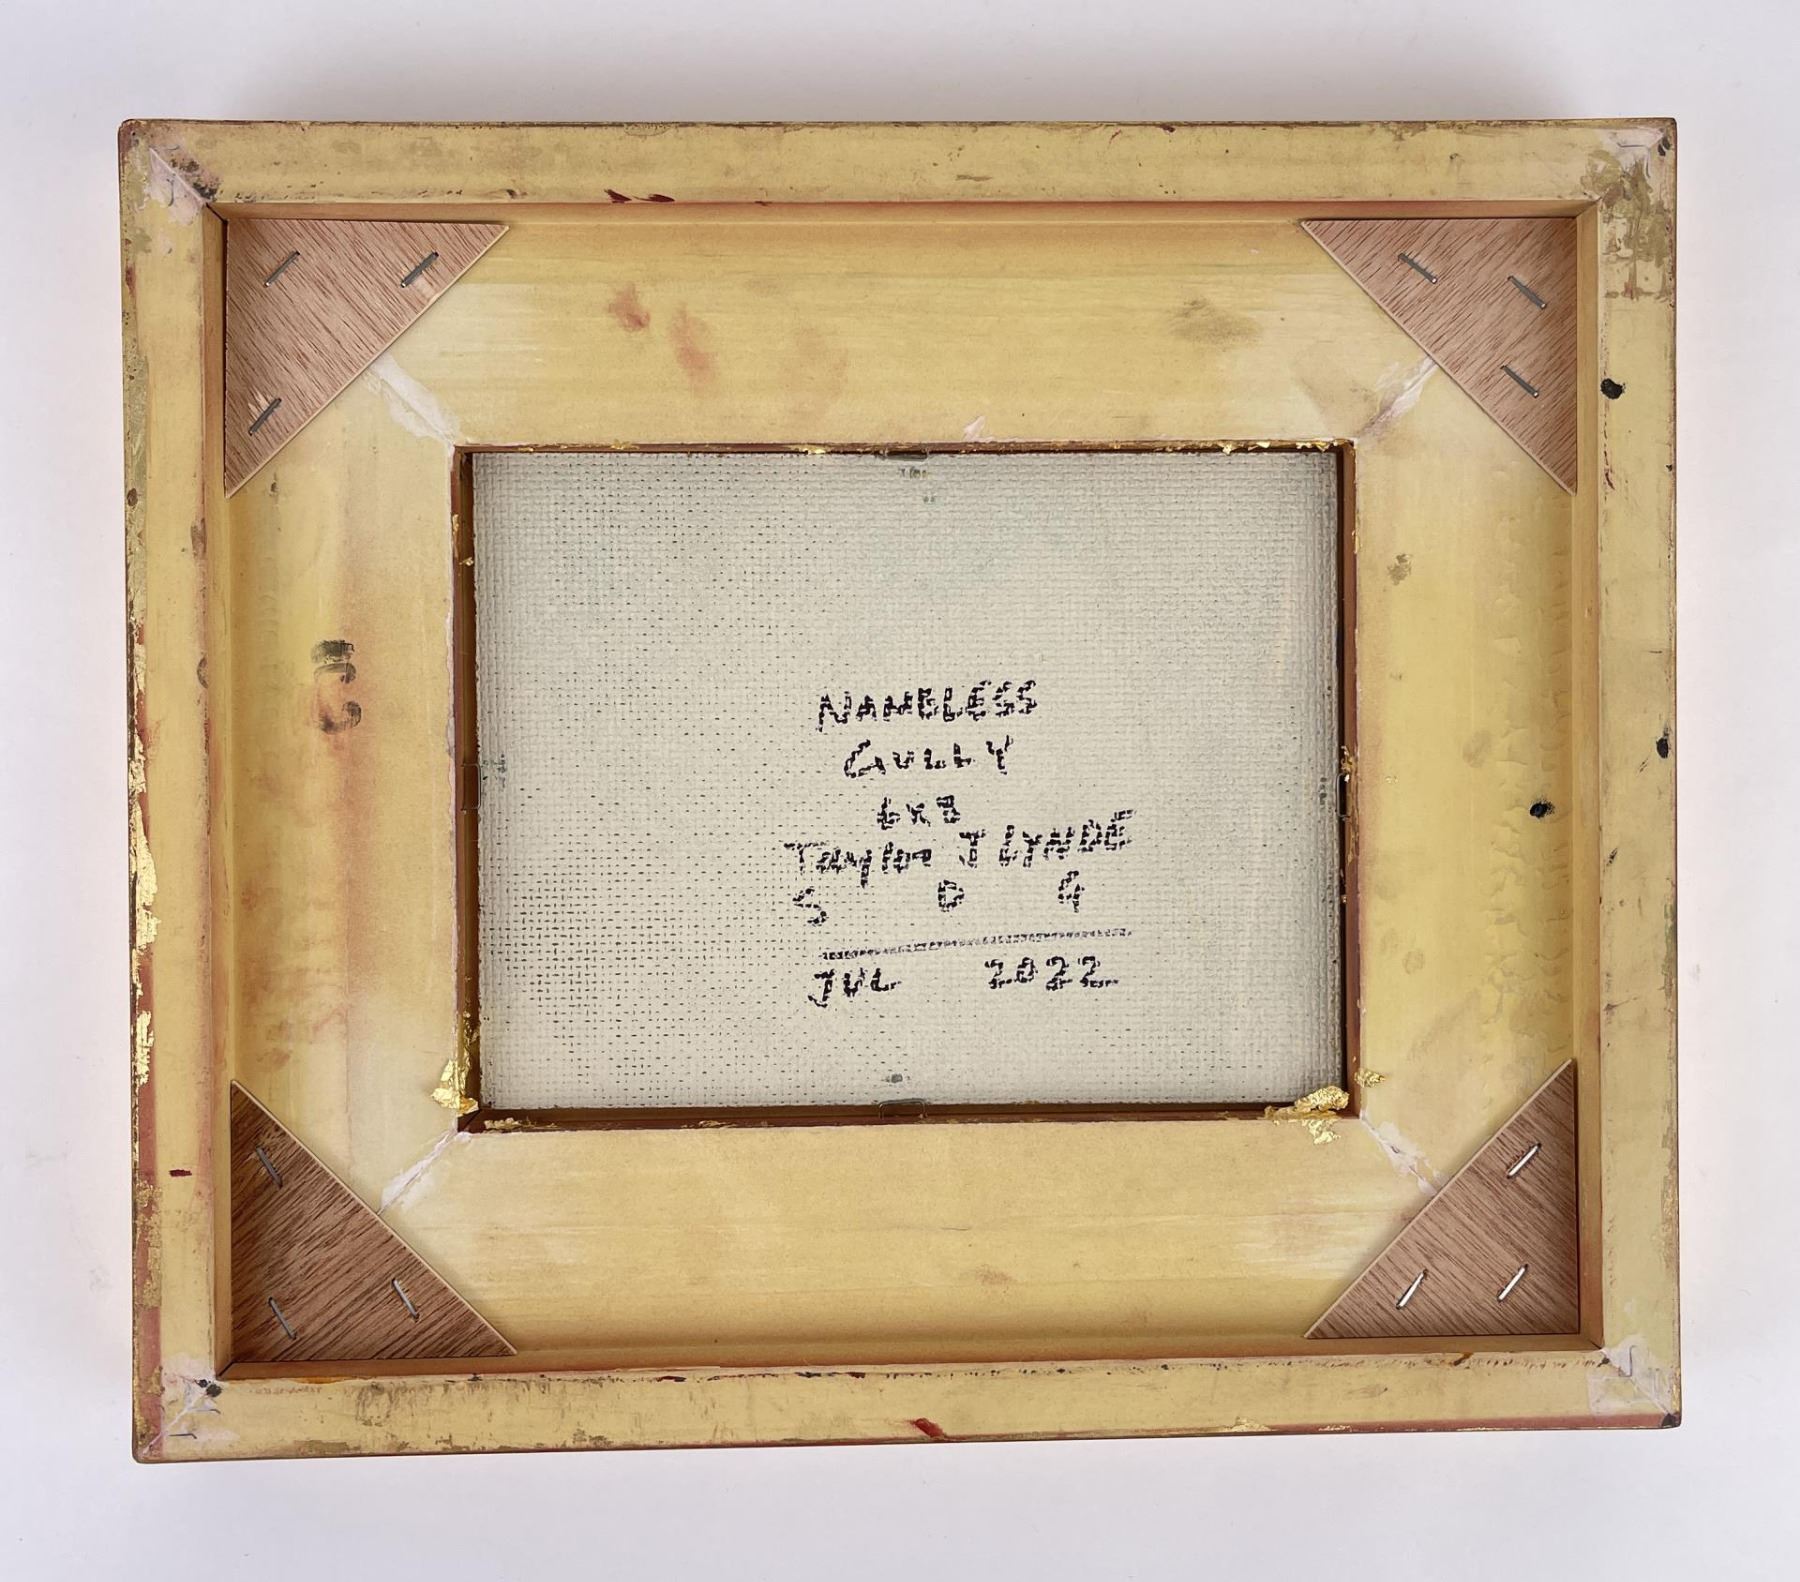 NAMELESS
GULLY
6x8
Taylor J LYNDE
S D G
JUL 2022